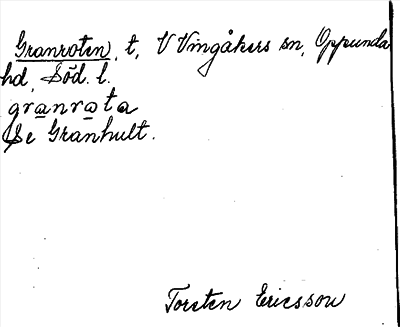 Granroten, t, V Vingåkers sn, Oppunda
hd, Söd. l.
granrota
Se Granhult.
Torsten Ericsson